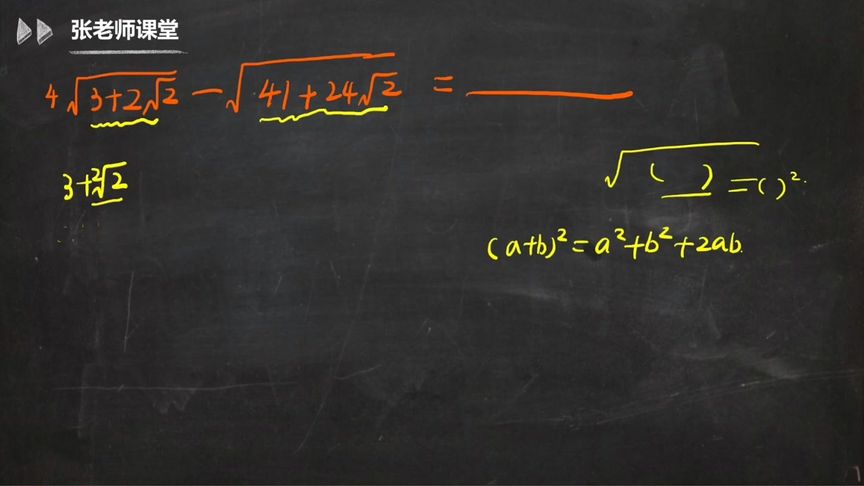 张老师课堂
4√(3+2√2) − √(41+24√2) = ______
3+2√2
√( ) =( )².
(a+b)²=a²+b²+2ab.